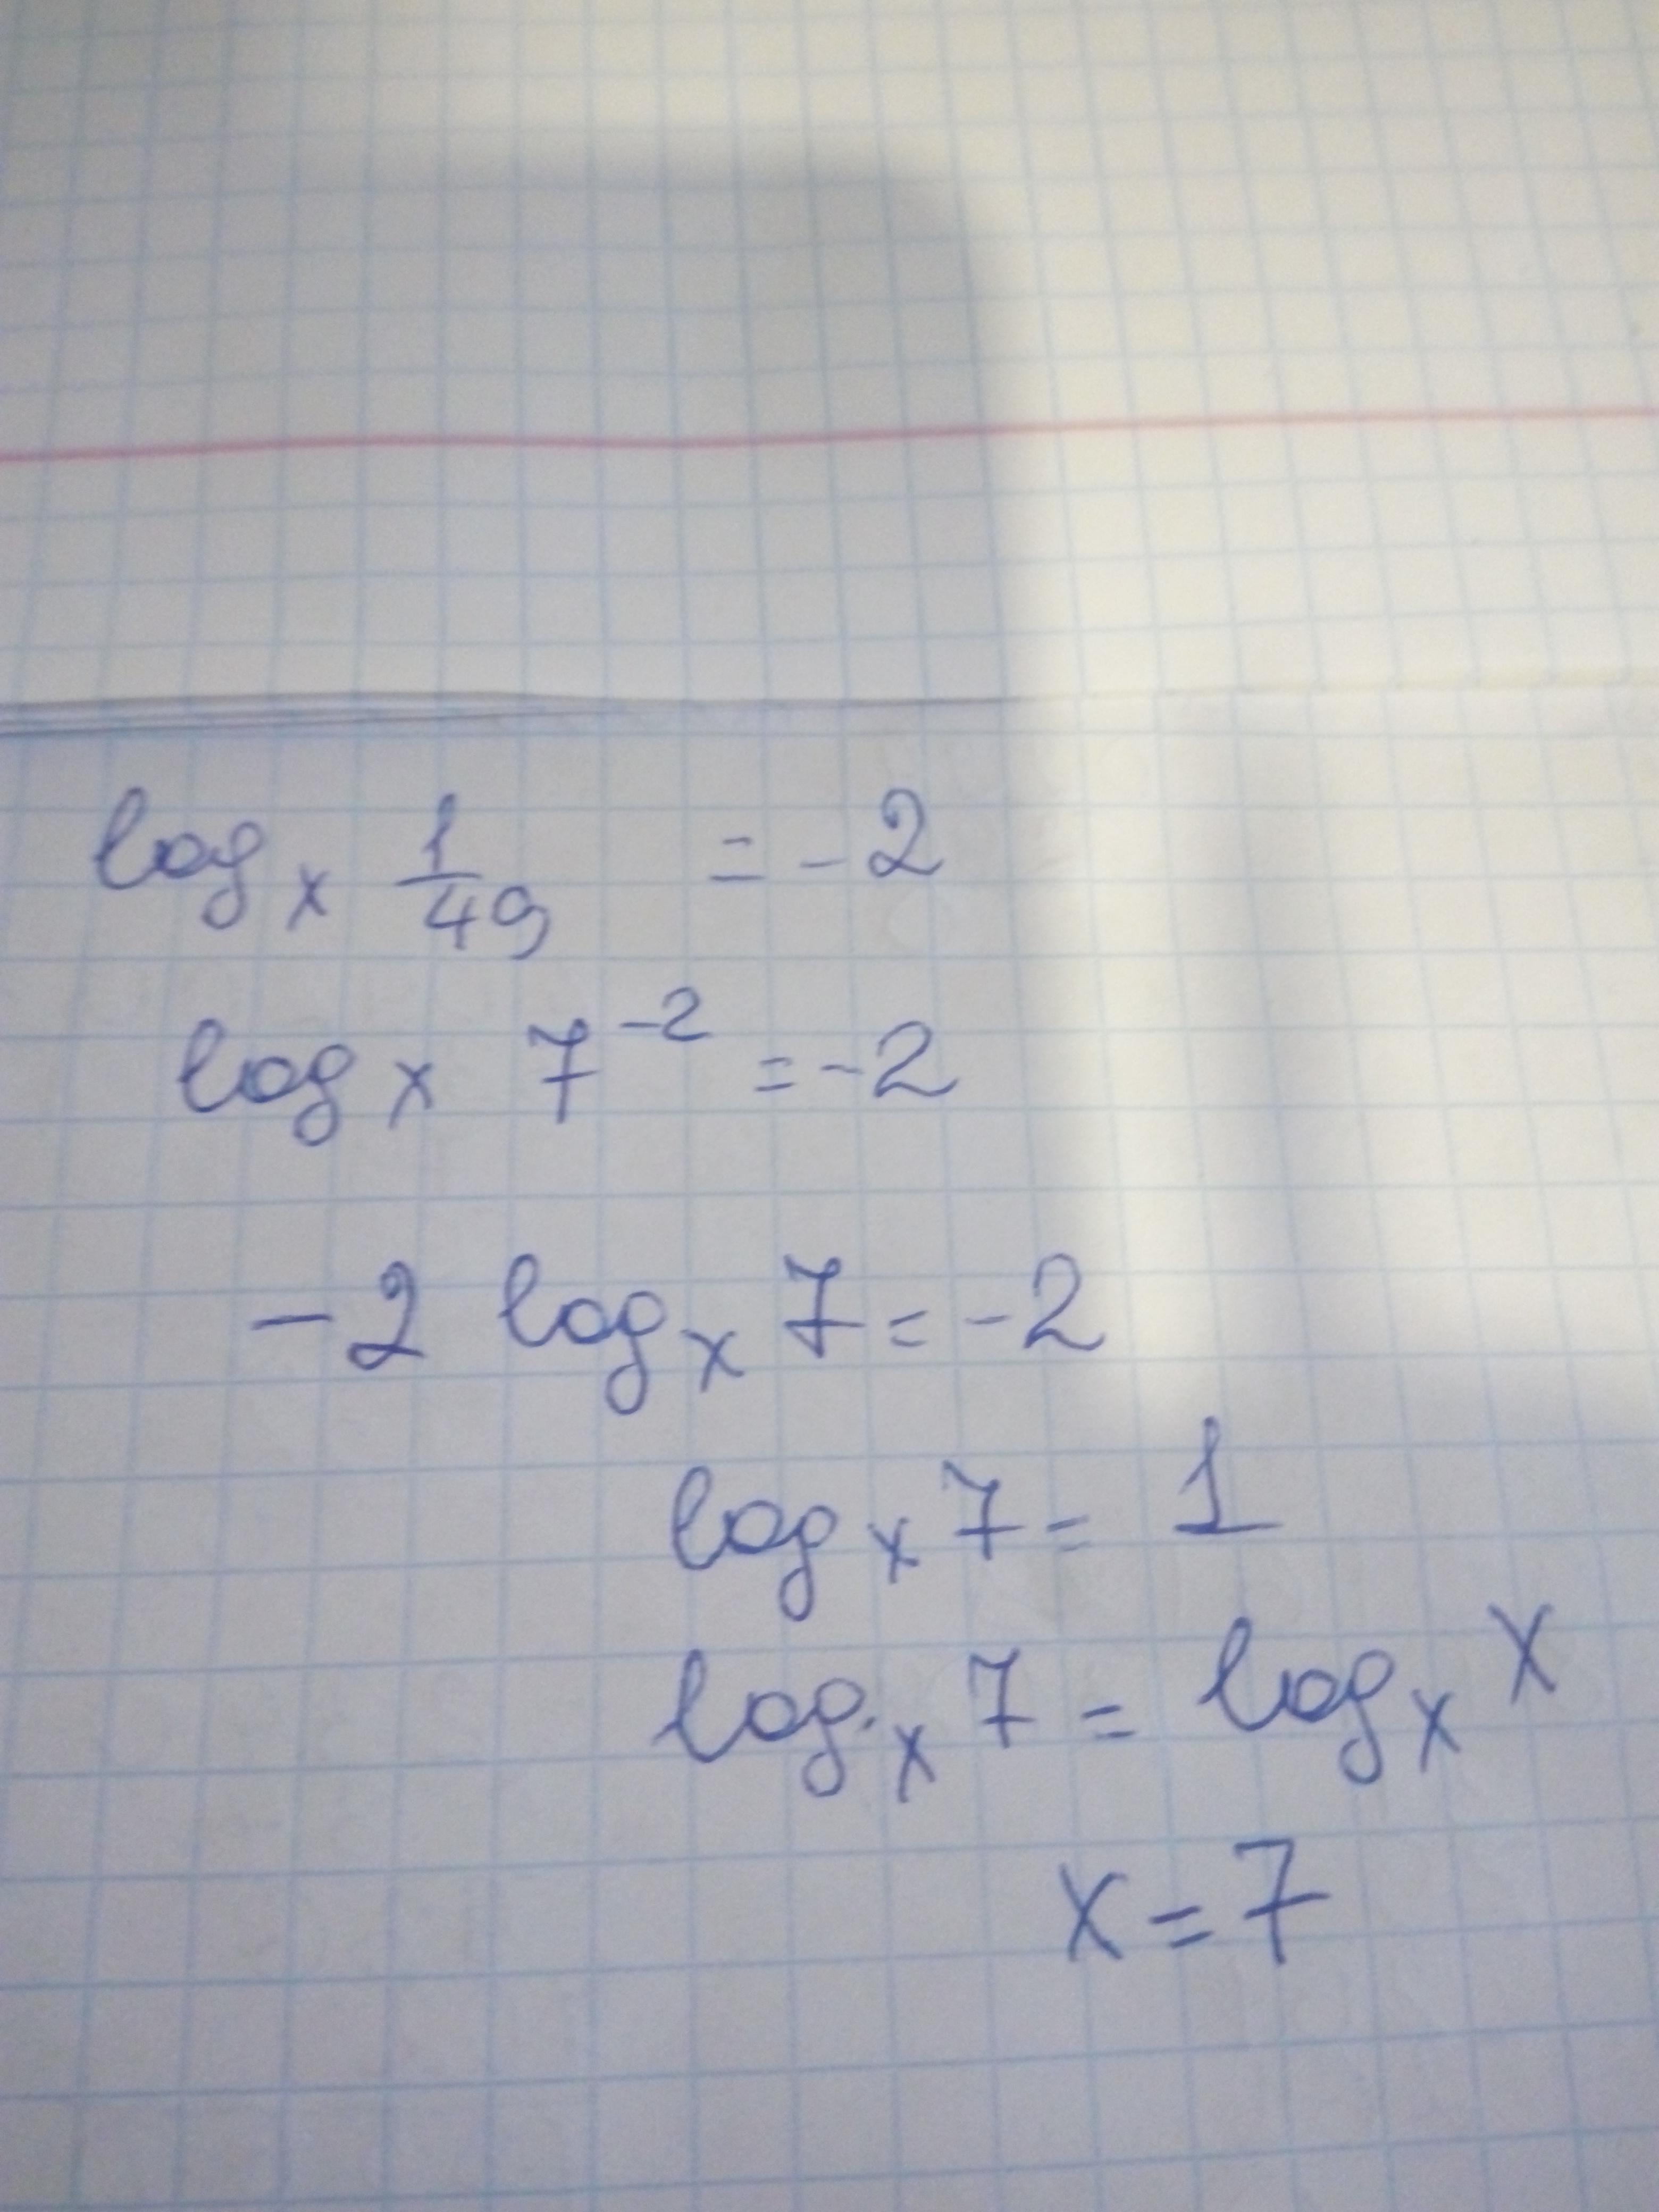 logₓ 1/49 = -2
logₓ 7⁻² = -2
-2 logₓ 7 = -2
logₓ 7 = 1
logₓ 7 = logₓ x
x = 7